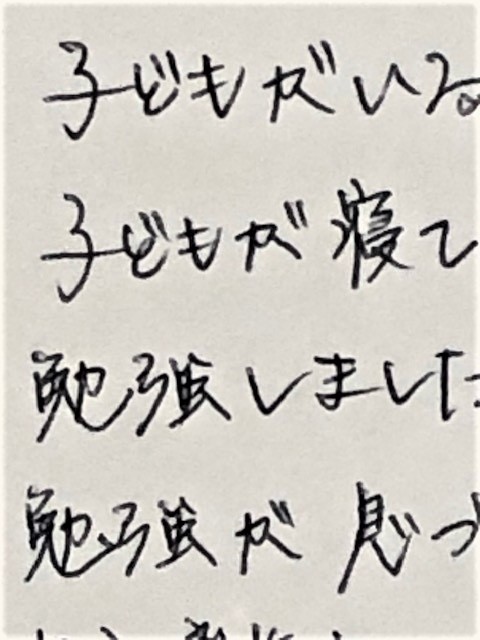 子どもがいる
子どもが寝て
勉強しました
勉強が